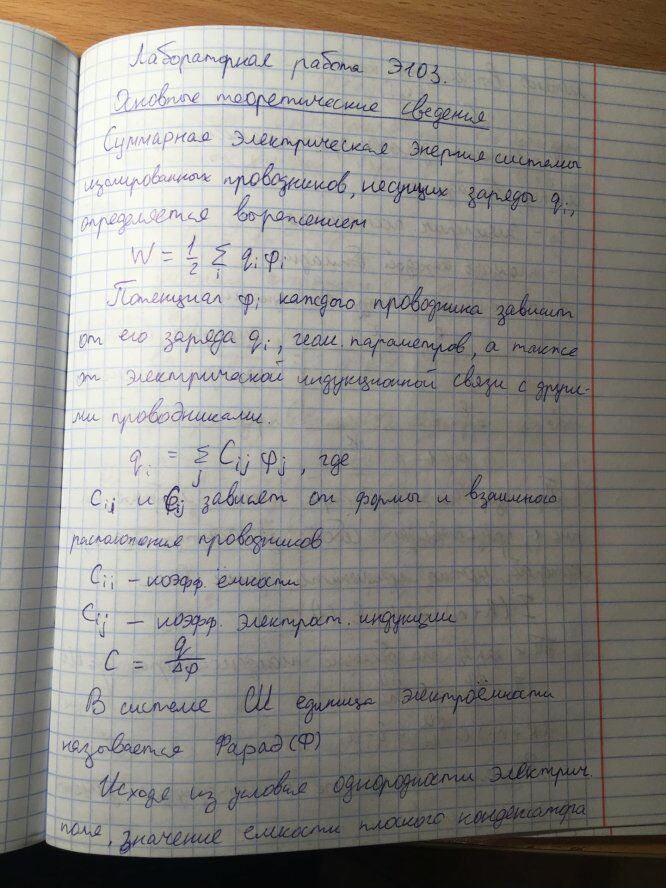 Лабораторная работа Э103.
Основные теоретические сведения
Суммарная электрическая энергия системы
изолированных проводников, несущих заряды qi,
определяется выражением
W = 1/2 Σi qi φi
Потенциал φi каждого проводника зависит
от его заряда qi, геом. параметров, а также
от электрической индукционной связи с други-
ми проводниками.
qi = Σj Cij φj, где
Cii и Cij зависят от формы и взаимного
расположения проводников
Cii – коэфф. ёмкости
Cij – коэфф. электрост. индукции
C = q/Δφ
В системе СИ единица электроёмкости
называется Фарад (Ф)
Исходя из условия однородности электрич.
поля, значение емкости плоского конденсатора